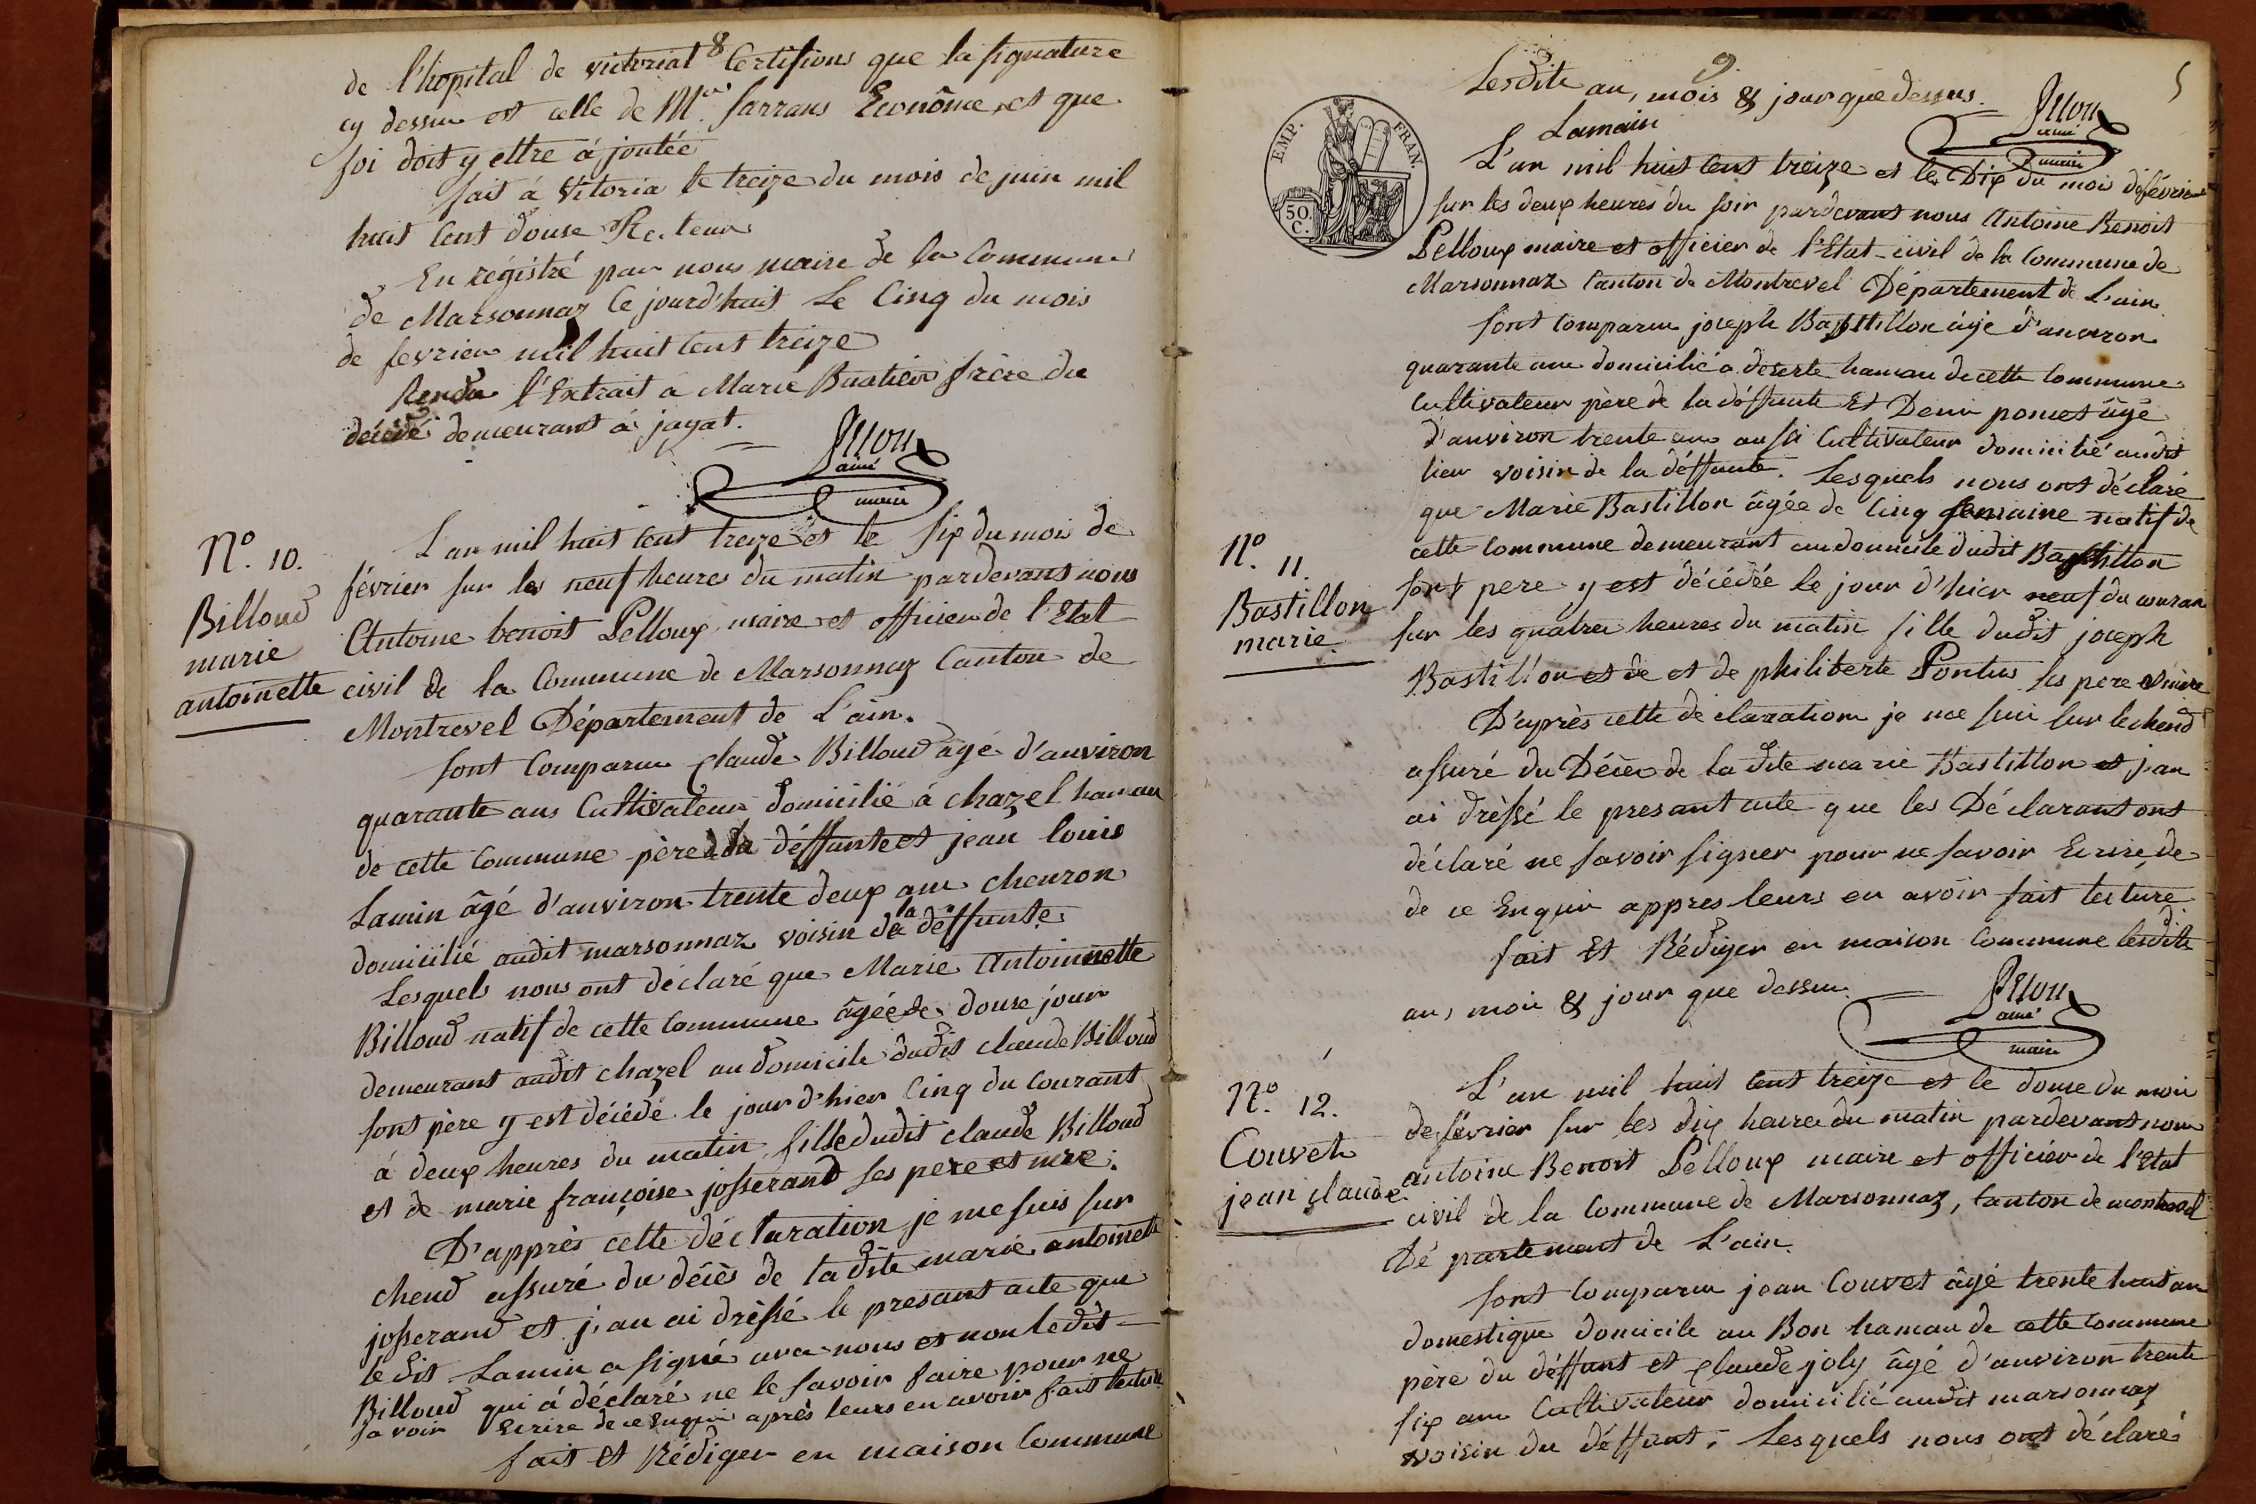 8
de l'hopital de victoriat Certifions que la signature
cy dessus est celle de Mr. Sarrans Econôme, et que
foi doit y ettre à joutée
fait á Vitoria le treize du mois de juin mil
huit Cent douse
En régistré par nous maire de la Commune
de Marsonnaz Ce jourd'huit Le Cinq du mois
de fevrier mil huit Cent treize
Rendu l'Extrait á Marie Buatier frère du
décédé demeurant á jayat.
Pellou
ainé
maire
N°. 10.
Billoud
marie
antoinette
L'an mil huit Cent treize et le six du mois de
février sur les neuf heures du matin pardevant nous
Antoine benoit Pelloux maire et officier de l'Etat
civil de la Commune de Marsonnaz Canton de
Montrevel Département de L'ain.
sont Comparu Claude Billoud agé d'anviron
quarante ans Cultivateur domicilié á chazel hamau
de cette Commune père de la déffunte et jean louis
Lamin âgé d'anviron trente deux ans
domicilié audit marsonnaz voisin de la déffunte.
Lesquels nous ont déclaré que Marie Antoinnette
Billoud natif de cette Commune âgée de douse jour
demeurant audit chazel au domicile dudit claude Billoud
sont père y est décédé le jour d'hier Cinq du Courant
á deux heures du matin, fille dudit claude Billoud
et de marie françoise josserand ses pere et mere.
D'apprès cette déclaration je me suis sur
chend assuré du décès de ladite marie antoinette
josserand et j'an ai dréssé le presant acte que
ledit Lamin a signé avec nous et non ledit
Billoud qui á déclaré ne le savoir faire pour ne
savoir Ecrire de ce Enquis après leurs en avoir fait lecture
fait Et Rédiger en maison Commune
9
5
Lesdite an, mois & jour que dessus.
Lamain
Pellou
ainé
maire
EMP. FRAN.
50. C.
L'an mil huit Cent treize et le Dix du mois de février
sur les deux heures du soir pardevant nous Antoine Benoit
Pelloux maire et officier de l'Etat-civil de la Commune de
Marsonnaz Canton de Montrevel Département de L'ain
sont Comparu joseph Bastillon âgé d'anviron
quarante ans domicilié a deserte hamau de cette Commune
Cultivateur père de la déffunte Et Denis ponset âgé
d'anviron trente ans aussi Cultivateur domicilié audit
lieu voisin de la déffunte. Lesquels nous ont déclaré
que Marie Bastillon âgée de Cinq semaine natif de
cette Commune demeurant au domicile dudit Bastillon
sont pere y est décédée le jour d'hier neuf du couran
sur les quatre heures du matin fille dudit joseph
Bastillon et de et de philiberte Pontus ses pere & mere
D'après cette déclaration je me suis sur lechend
assuré du Décès de la dite marie Bastillon et j'an
ai dréssé le presant acte que les Déclarant ont
déclaré ne savoir signer pour ne savoir Ecrire, de
de ce Enquis appres leurs en avoir fait lecture
fait Et Rédiger en maison Commune lesdite
an, mois & jour que dessus.
Pellou
ainé
maire
N°. 11.
Bastillon
marie
N°. 12.
Couvet
jean claude
L'an mil huit Cent treize et le douse du mois
de février sur les dix heures du matin pardevant nous
antoine Benoit Pelloux maire et officier de l'Etat
civil de la Commune de Marsonnaz, Canton de montrevel
Département de L'ain.
sont Comparu jean Couvet âgé trente huit an
domestique domicile au Bon hamau de cette Commune
père du déffunt et Claude joly âgé d'anviron trente
six ans Cultivateur domicilié audit marsonnaz
voisin du déffunt. Lesquels nous ont déclaré